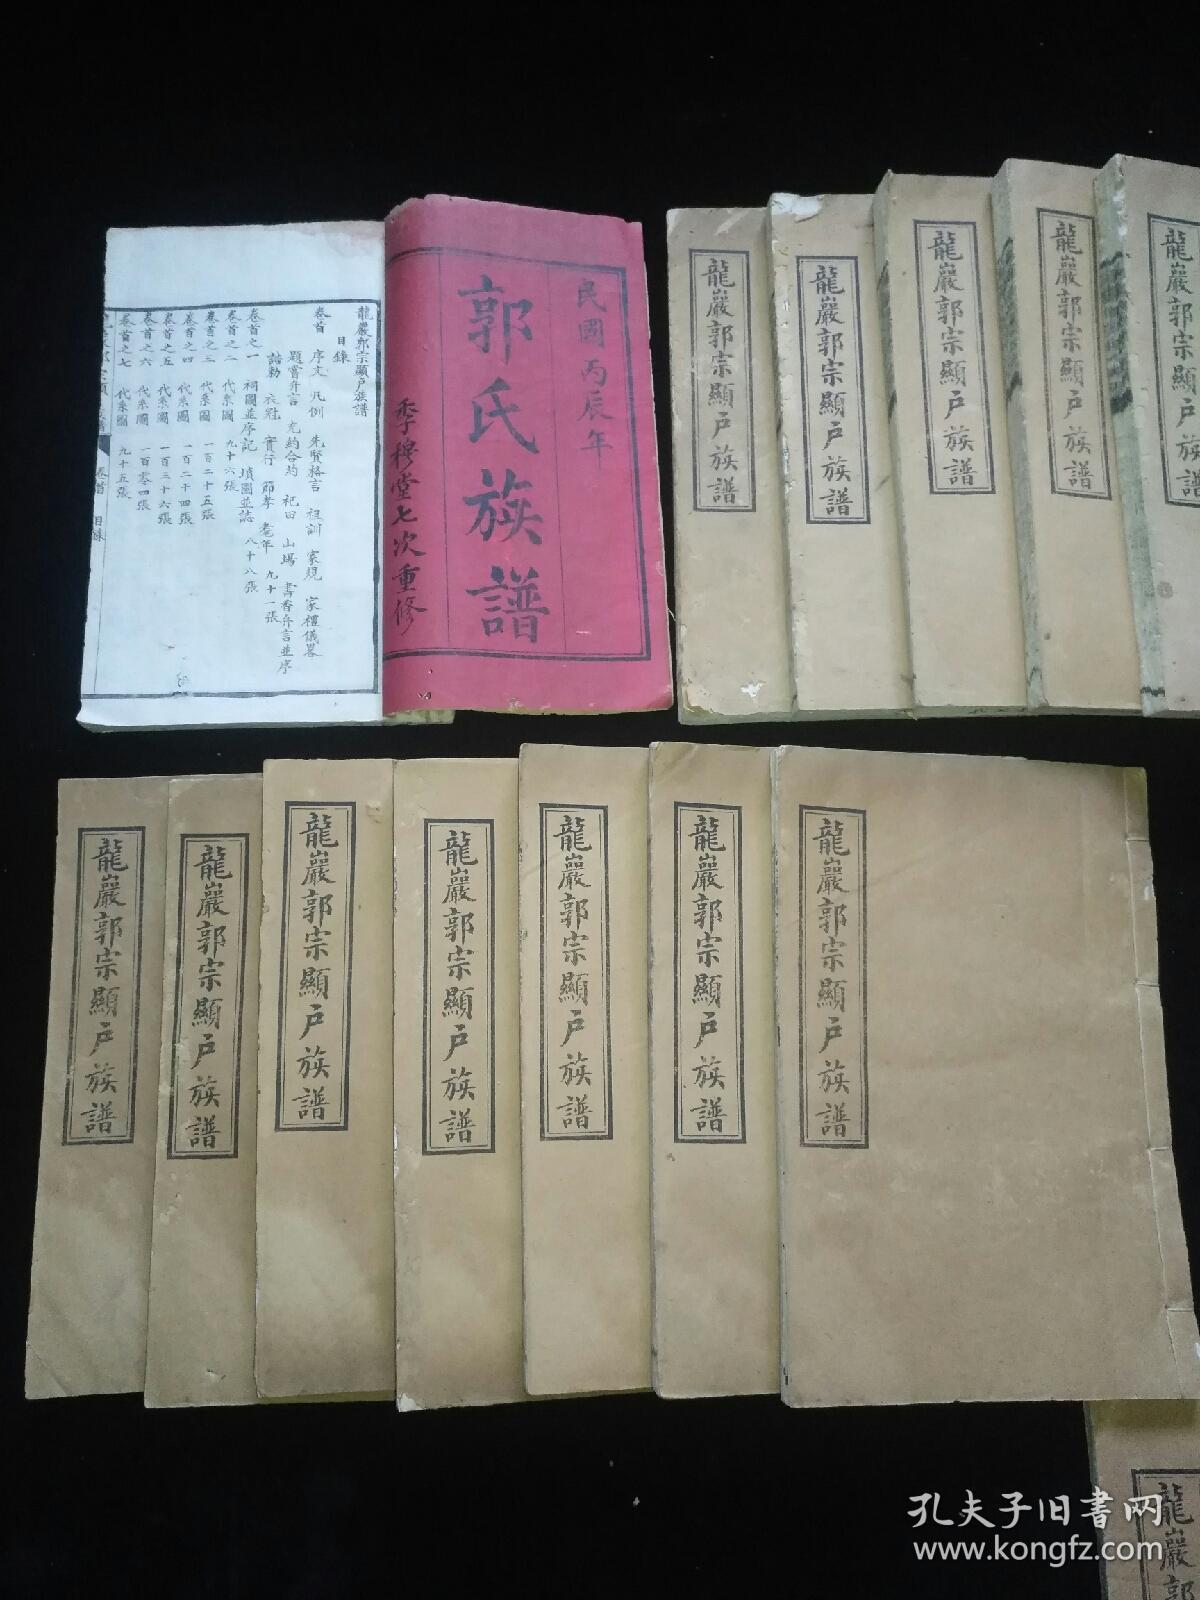 民國丙辰年
郭氏族譜
季穆堂七次重修
龍巖郭宗顯戶族譜
目錄
卷首 序文 凡例 先賢格言 祖訓 家規 家禮儀畧
題嘗弁言 允約合約 祀田 山場 書香弁言並序
誥勅 衣冠 實行 節孝 耄年 九十一張
卷首之一 祠圖並序記 墳圖並誌 八十八張
卷首之二 代系圖 九十六張
卷首之三 代系圖 一百二十五張
卷首之四 代系圖 一百二十四張
卷首之五 代系圖 一百三十六張
卷首之六 代系圖 一百零四張
卷首之七 代系圖 九十五張
卷首 目錄
龍巖郭宗顯戶族譜
龍巖郭宗顯戶族譜
龍巖郭宗顯戶族譜
龍巖郭宗顯戶族譜
龍巖郭宗顯戶族譜
龍巖郭宗顯戶族譜
龍巖郭宗顯戶族譜
龍巖郭宗顯戶族譜
龍巖郭宗顯戶族譜
龍巖郭宗顯戶族譜
龍巖郭宗顯戶族譜
龍巖郭宗顯戶族譜
龍巖郭
孔夫子旧书网
www.kongfz.com